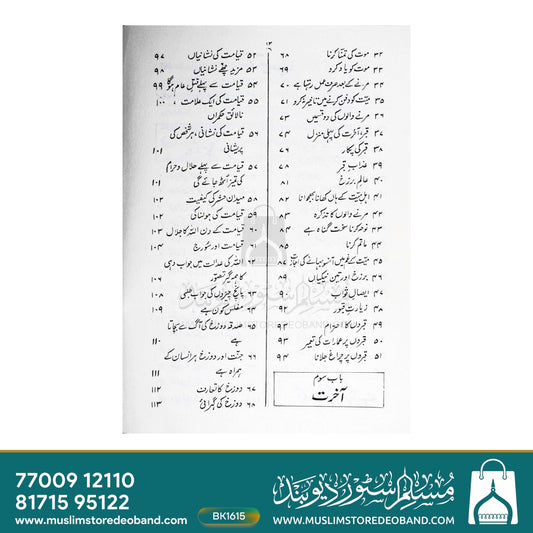 ۱۳
۳۲ موت کی تمنا کرنا ۶۸
۳۳ موت کو یاد کرو ۶۹
۳۴ مرنے کے بعد صرف عمل رہتا ہے ۷۰
۳۵ میّت کو دفن کرنے میں تاخیر نہ کرو ۷۱
۳۶ مرنے والوں کی دو قسمیں
۳۷ قبر، آخرت کی پہلی منزل ۷۴
۳۸ قبر کی پکار ۷۶
۳۹ عذاب قبر ۷۸
۴۰ عالم برزخ ۸۱
۴۱ اہل میّت کے ہاں کھانا بھجوانا ۸۲
۴۲ مرنے والوں کا تذکرہ ۸۳
۴۳ نوحہ کرنا سخت گناہ ہے ۸۴
۴۴ ماتم کرنا ۸۵
۴۵ میّت کے غم میں آنسو بہانے کی اجازت ۸۷
۴۶ برزخ اور تین نیکیاں ۸۹
۴۷ ایصال ثواب ۹۰
۴۸ زیارت قبور
۴۹ قبروں کا احترام
۵۰ قبروں پر عمارات کی تعمیر ۹۳
۵۱ قبروں پر چراغ جلانا ۹۴
باب سوم
آخرت
۵۲ قیامت کی نشانیاں ۹۷
۵۳ مزید چھے نشانیاں ۹۸
۵۴ قیامت سے پہلے قتل عام ہوگا ۹۹
۵۵ قیامت کی ایک علامت، ۱۰۰
نالائق حکمران
۵۶ قیامت کی نشانی، ہر شخص کی
پریشانی ۱۰۱
۵۷ قیامت سے پہلے حلال و حرام
کی تمیز اُٹھ جائے گی ۱۰۱
۵۸ میدان حشر کی کیفیت ۱۰۲
۵۹ قیامت کی ہولناکی
۶۰ قیامت کے دن اللہ کا جلال ۱۰۳
۶۱ قیامت اور سورج ۱۰۴
اللہ کی عدالت میں جواب دہی
کا ہمہ گیر تصور ۱۰۶
۶۳ پانچ چیزوں کی جواب طلبی ۱۰۸
مفلس کون ہے ۱۰۹
صدقہ دوزخ کی آگ سے بچاتا
ہے ۱۱۰
۶۶ جنت اور دوزخ ہر انسان کے
ہمراہ ہے ۱۱۱
۶۷ دوزخ کا تعارف ۱۱۲
۶۸ دوزخ کی گہرائی ۱۱۳
مسلم سٹور دیوبند
STOREDEOBAND.COM
77009 12110
81715 95122
www.muslimstoredeoband.com
BK1615
مسلم سٹور دیوبند
WWW.MUSLIMSTOREDEOBAND.COM